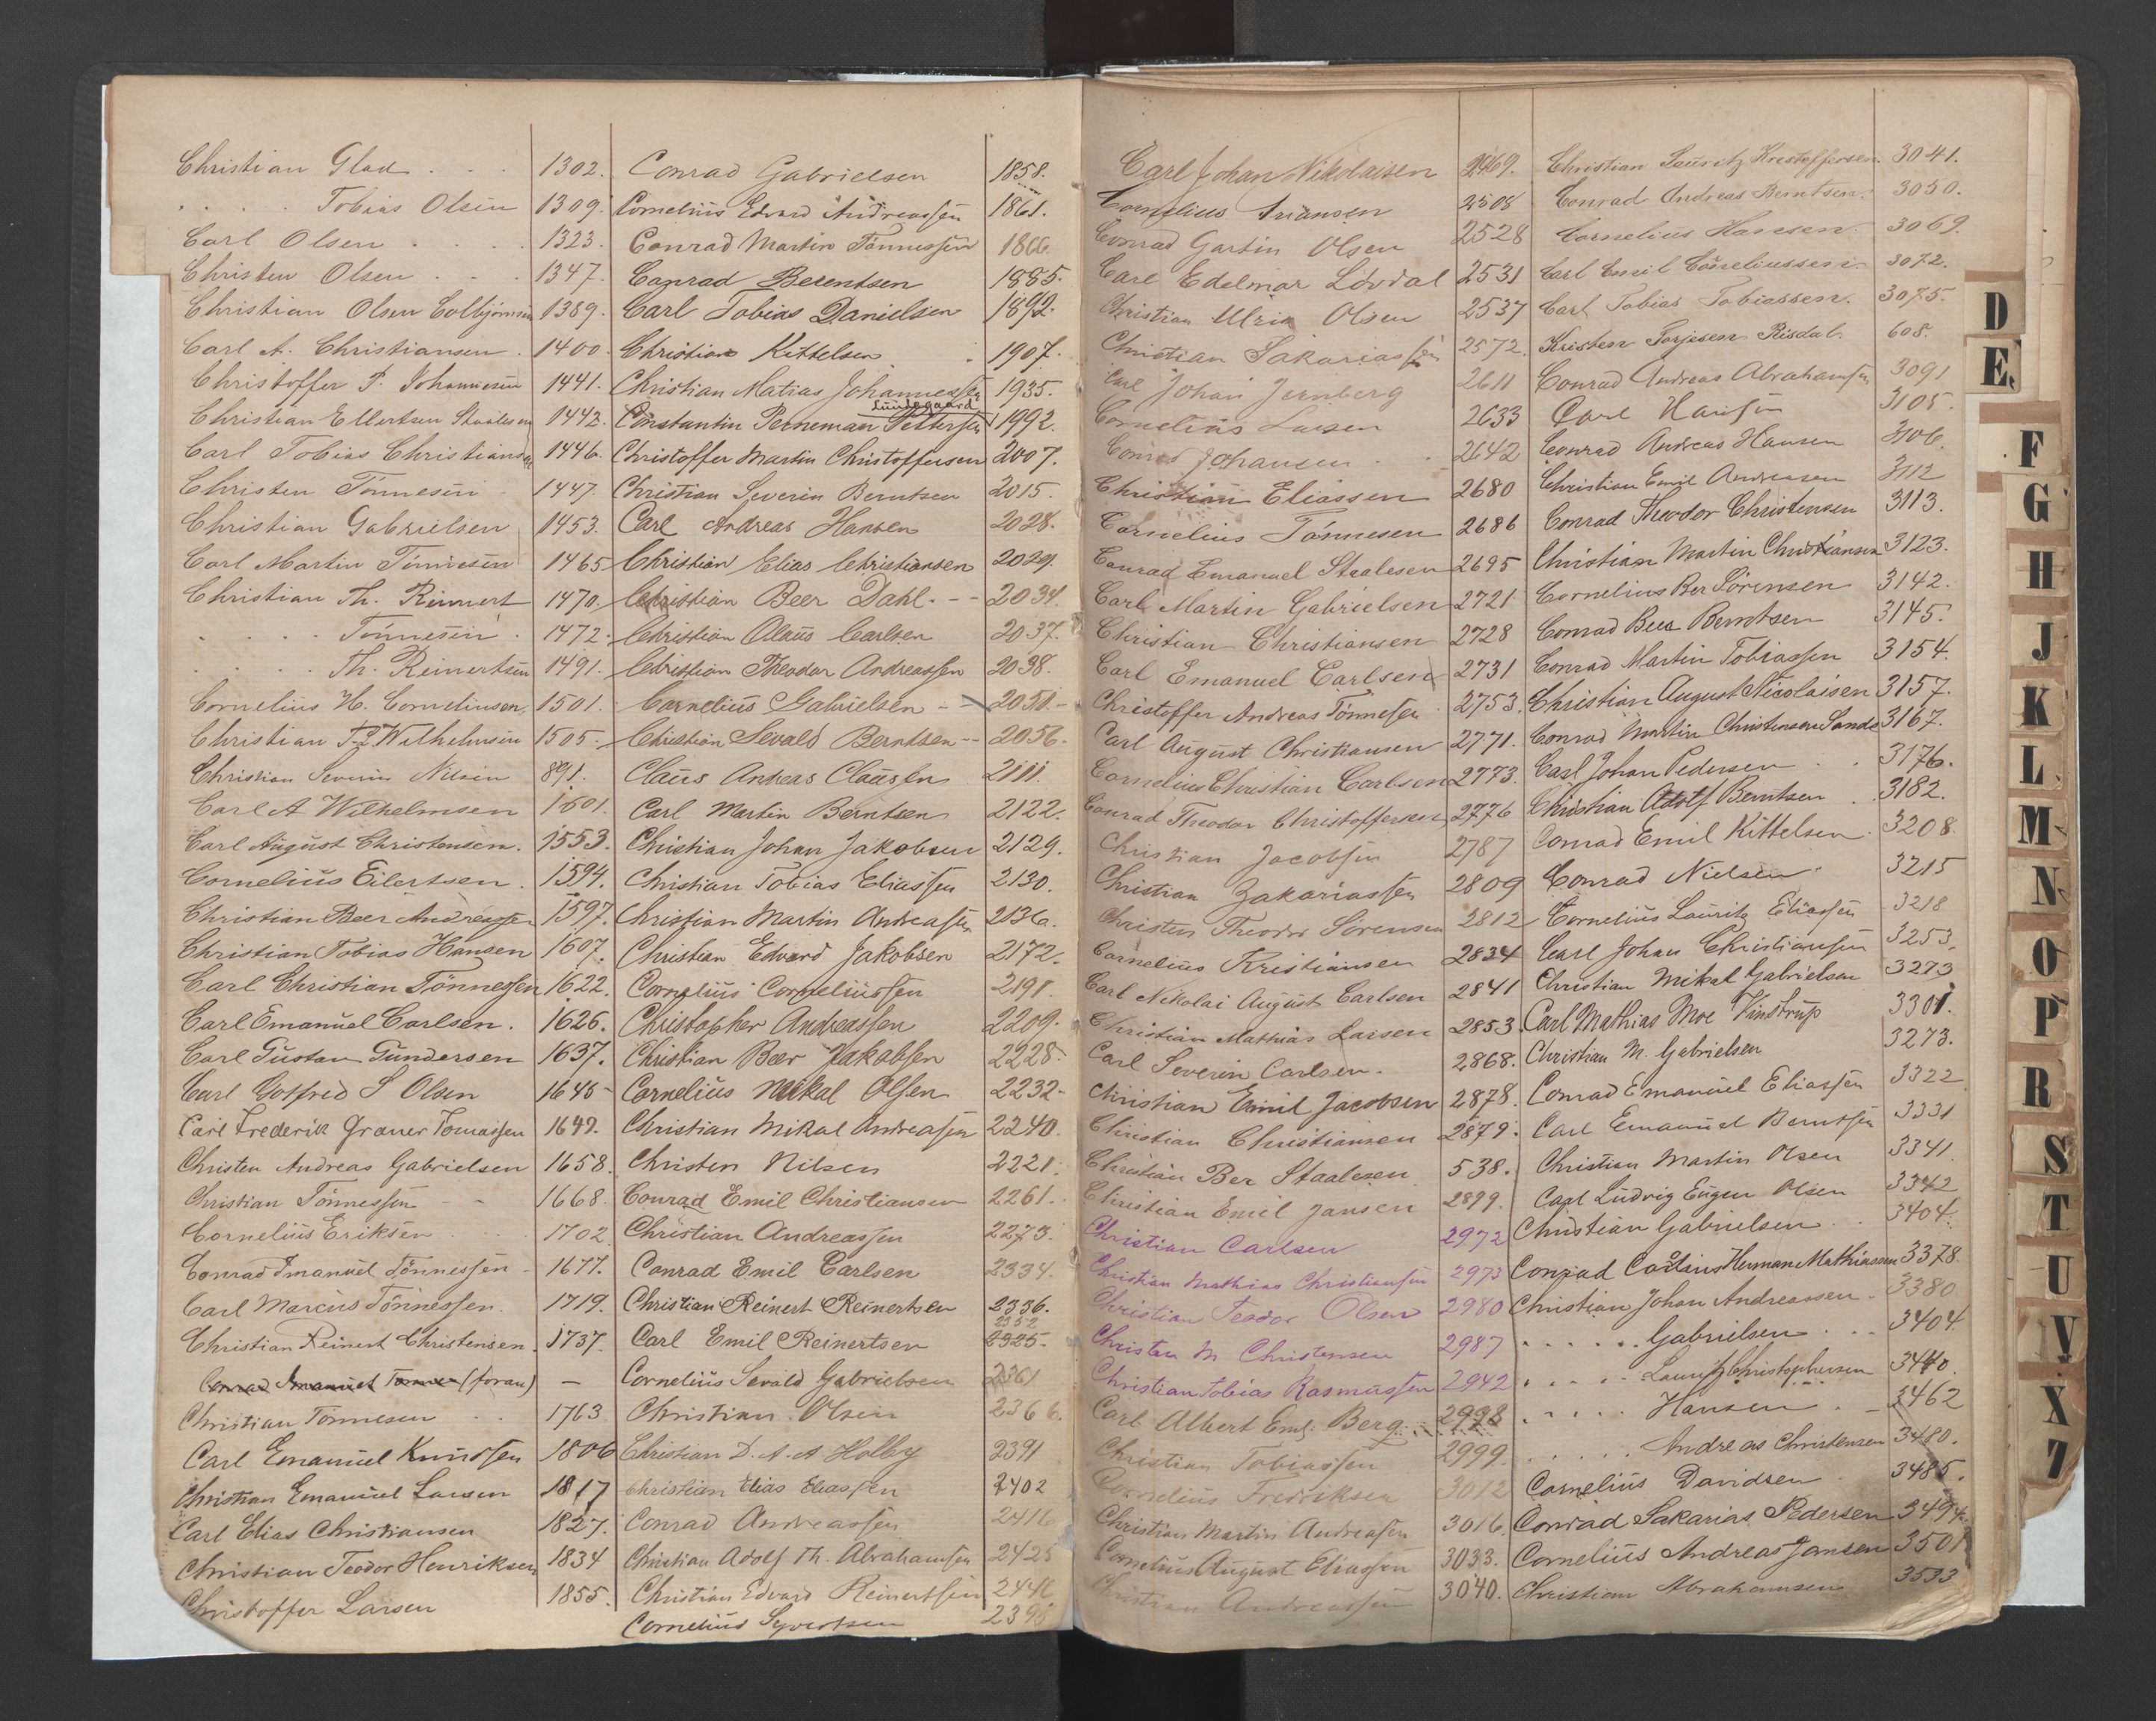 Christian Glad . . . 1302.
. . . . Tobias Olsen 1309.
Carl Olsen . . . . 1323.
Christen Olsen . . . 1347.
Christian Olsen 1389.
Carl A. Christiansen . 1400.
Christoffer P. Johannesen 1441.
Christian Ellertsen Staalesen 1442.
Carl Tobias Christiansen 1446.
Christen Tönnesen 1447.
Christian Gabrielsen 1453.
Carl Martin Tönnesen 1465
Christian Th. Reinert 1470.
. . . . Tönnesen . 1472.
. . . . Th. Reinertsen 1491.
Cornelius H. Corneliusen 1501.
Christian Wilhelmsen 1505.
Christian Severin Nilsen 891.
Carl A Wilhelmsen 1501.
Carl August Christensen. 1553.
Cornelius Eilertsen. 1594.
Christian Beer Andreassen 1597.
Christian Tobias Hansen 1607.
Carl Christian Tönnessen 1622.
Carl Emanuel Carlsen. 1626.
Carl Gustav Gundersen 1637.
Carl Gotfred S Olsen 1645
Carl Frederik Graner Tomassen 1649.
Christen Andreas Gabrielsen 1658.
Christian Tönnessen 1668.
Cornelius Eriksen 1702.
Conrad Emanuel Tönnessen 1677.
Carl Marcus Tönnessen. 1719.
Christian Reinert Christensen. 1737.
Conrad Emanuel (foran) —
Christian Tönnesen 1763
Carl Emanuel Knudssen 1806
Christian Emanuel Larsen 1817
Carl Elias Christiansen 1827.
Christian Teodor Henriksen 1834
Christoffer Larsen 1855.
Conrad Gabrielsen 1858.
Cornelius Edvard Andreassen 1861.
Conrad Martin Tönnessen 1866
Conrad Berentsen 1885.
Carl Tobias Danielsen 1892.
Christian Kittelsen . 1907.
Christian Matias Johannessen 1935.
Lundegaard
Constantin Perneman Pettersen 1992.
Christoffer Martin Christoffersen 2007.
Christian Severin Berntsen 2015.
Carl Andreas Hansen 2028.
Christian Elias Christiansen 2029.
Christian Beer Dahl. -- 2034.
Christian Olaus Carlsen 2037.
Christian Theodor Andreassen 2038.
Cornelius Gabrielsen -- 2051.-
Christian Sevald Berntsen -- 2056.
Claus Andreas Clausen 2111.
Carl Martin Berntsen 2122.
Christian Johan Jakobsen 2129.
Christian Tobias Eliassen 2130.
Christian Martin Andreassen 2136.
Christian Edvard Jakobsen 2172.
Cornelius Corneliussen 2191.
Christopher Andreassen 2209.
Christian Beer Jakobsen 2228.
Cornelius Mikal Olsen 2232-
Christian Mikal Andreasen 2240.
Christen Nilsen 2221.
Conrad Emil Christiansen 2261.
Christian Andreassen 2273.
Conrad Emil Carlsen 2334.
Christian Reinert Reinertsen 2336.
2352
Carl Emil Reinertsen 2325.
Cornelius Sevald Gabrielsen 2361
Christian Olsen 2366.
Christian D. A. A Holby 2391
Christian Elias Eliassen 2402
Conrad Andreassen 2416
Christian Adolf Th. Abrahamsen 2425
Christian Edvard Reinertsen
Cornelius Syvertsen
Carl Johan Nikolaisen 2469.
Cornelius 2508
Conrad Gartin Olsen 2528
Carl Edelmar Lövdal 2531
Christian Ulrik Olsen 2537
Christian Sakariassen 2572.
Carl Johan Jernberg 2611
Cornelius Larsen 2633
Johansen . . 2642
Christian Eliassen 2680
Cornelius Tönnesen 2686
Conrad Emanuel Staalesen 2695
Carl Martin Gabrielsen 2721
Christian Christiansen 2728
Carl Emanuel Carlsen 2731
Christoffer Andreas Tönnesen 2753.
Carl August Christiansen 2771.
Cornelius Christian Carlsen 2773.
Conrad Theodor Christoffersen 2776
Christian Jacobsen 2787
Christian Zakariassen 2809
Christen Theodor Sörensen 2812
Cornelius Kristiansen 2834
Carl Nikolai August Carlsen 2841
Christian Mathias Larsen 2853.
Carl Severin Carlsen. 2868.
Christian Emil Jacobsen 2878.
Christian Christiansen 2879.
Christian Ber Staalesen 538.
Christian Emil Jansen 2899.
Christian Carlsen 2972
Christian Mathias Christiansen 2973
Christian Teodor Olsen 2980
Christen M Christensen 2987
Christian Tobias Rasmussen 2942
Carl Albert Emil Berg. 2998
Christian Tobiassen 2999.
Cornelius Fredriksen 3012
Christian Martin Andreasen 3016.
Cornelius August Eliassen 3033.
Christian Andreassen 3040.
Christian Lauritz Kristoffersen. 3041.
Conrad Andreas Berntsen. 3050.
Cornelius Hansen. 3069.
Carl Emil Corneliussen. 3072.
Carl Tobias Tobiassen. 3075.
Kristen Torjesen Risdal. 608.
Conrad Andreas Abrahamsen 3091
Carl Hansen 3105.
Conrad Andreas Hansen 3106.
Christian Emil Andreasen 3112
Conrad Theodor Christensen 3113.
Christian Martin Christiansen 3123.
Cornelius Ber Sörensen 3142.
Conrad Beer Berntsen 3145.
Conrad Martin Tobiassen 3154.
Christian August Nicolaisen 3157.
Conrad Martin Christensen Sande 3167.
Carl Johan Pedersen . . 3176.
Christian Adolf Berntsen . 3182.
Conrad Emil Kittelsen. 3208.
Conrad Nielsen. 3215
Cornelius Lauritz Eliassen 3218
Carl Johan Christiansen 3253.
Christian Mikal Gabrielsen 3273
Carl Mathias Moe Vinstrup 3301.
Christian M. Gabrielsen 3273.
Conrad Emanuel Eliassen 3322
Carl Emanuel Berntsen 3331
Christian Martin Olsen 3341
Carl Ludvig Eugen Olsen 3342
Christian Gabrielsen . . 3404.
Conrad Carlius Herman Mathiassen 3378.
Christian Johan Andreassen. 3380
. . . . . Gabrielsen . . . 3404
. . . . . Lauritz Christophersen 3440.
. . . . . Hansen . - 3462
. . . . . Andreas Christensen 3480.
Cornelius Davidsen . 3485.
Conrad Sakarias Pedersen 3494.
Cornelius Andreas Jansen 3501
Christian Abrahamsen 3533
D
E.
F
G
H
J
K
L
M
N
O
P
R
S
T
U
V
X
Z